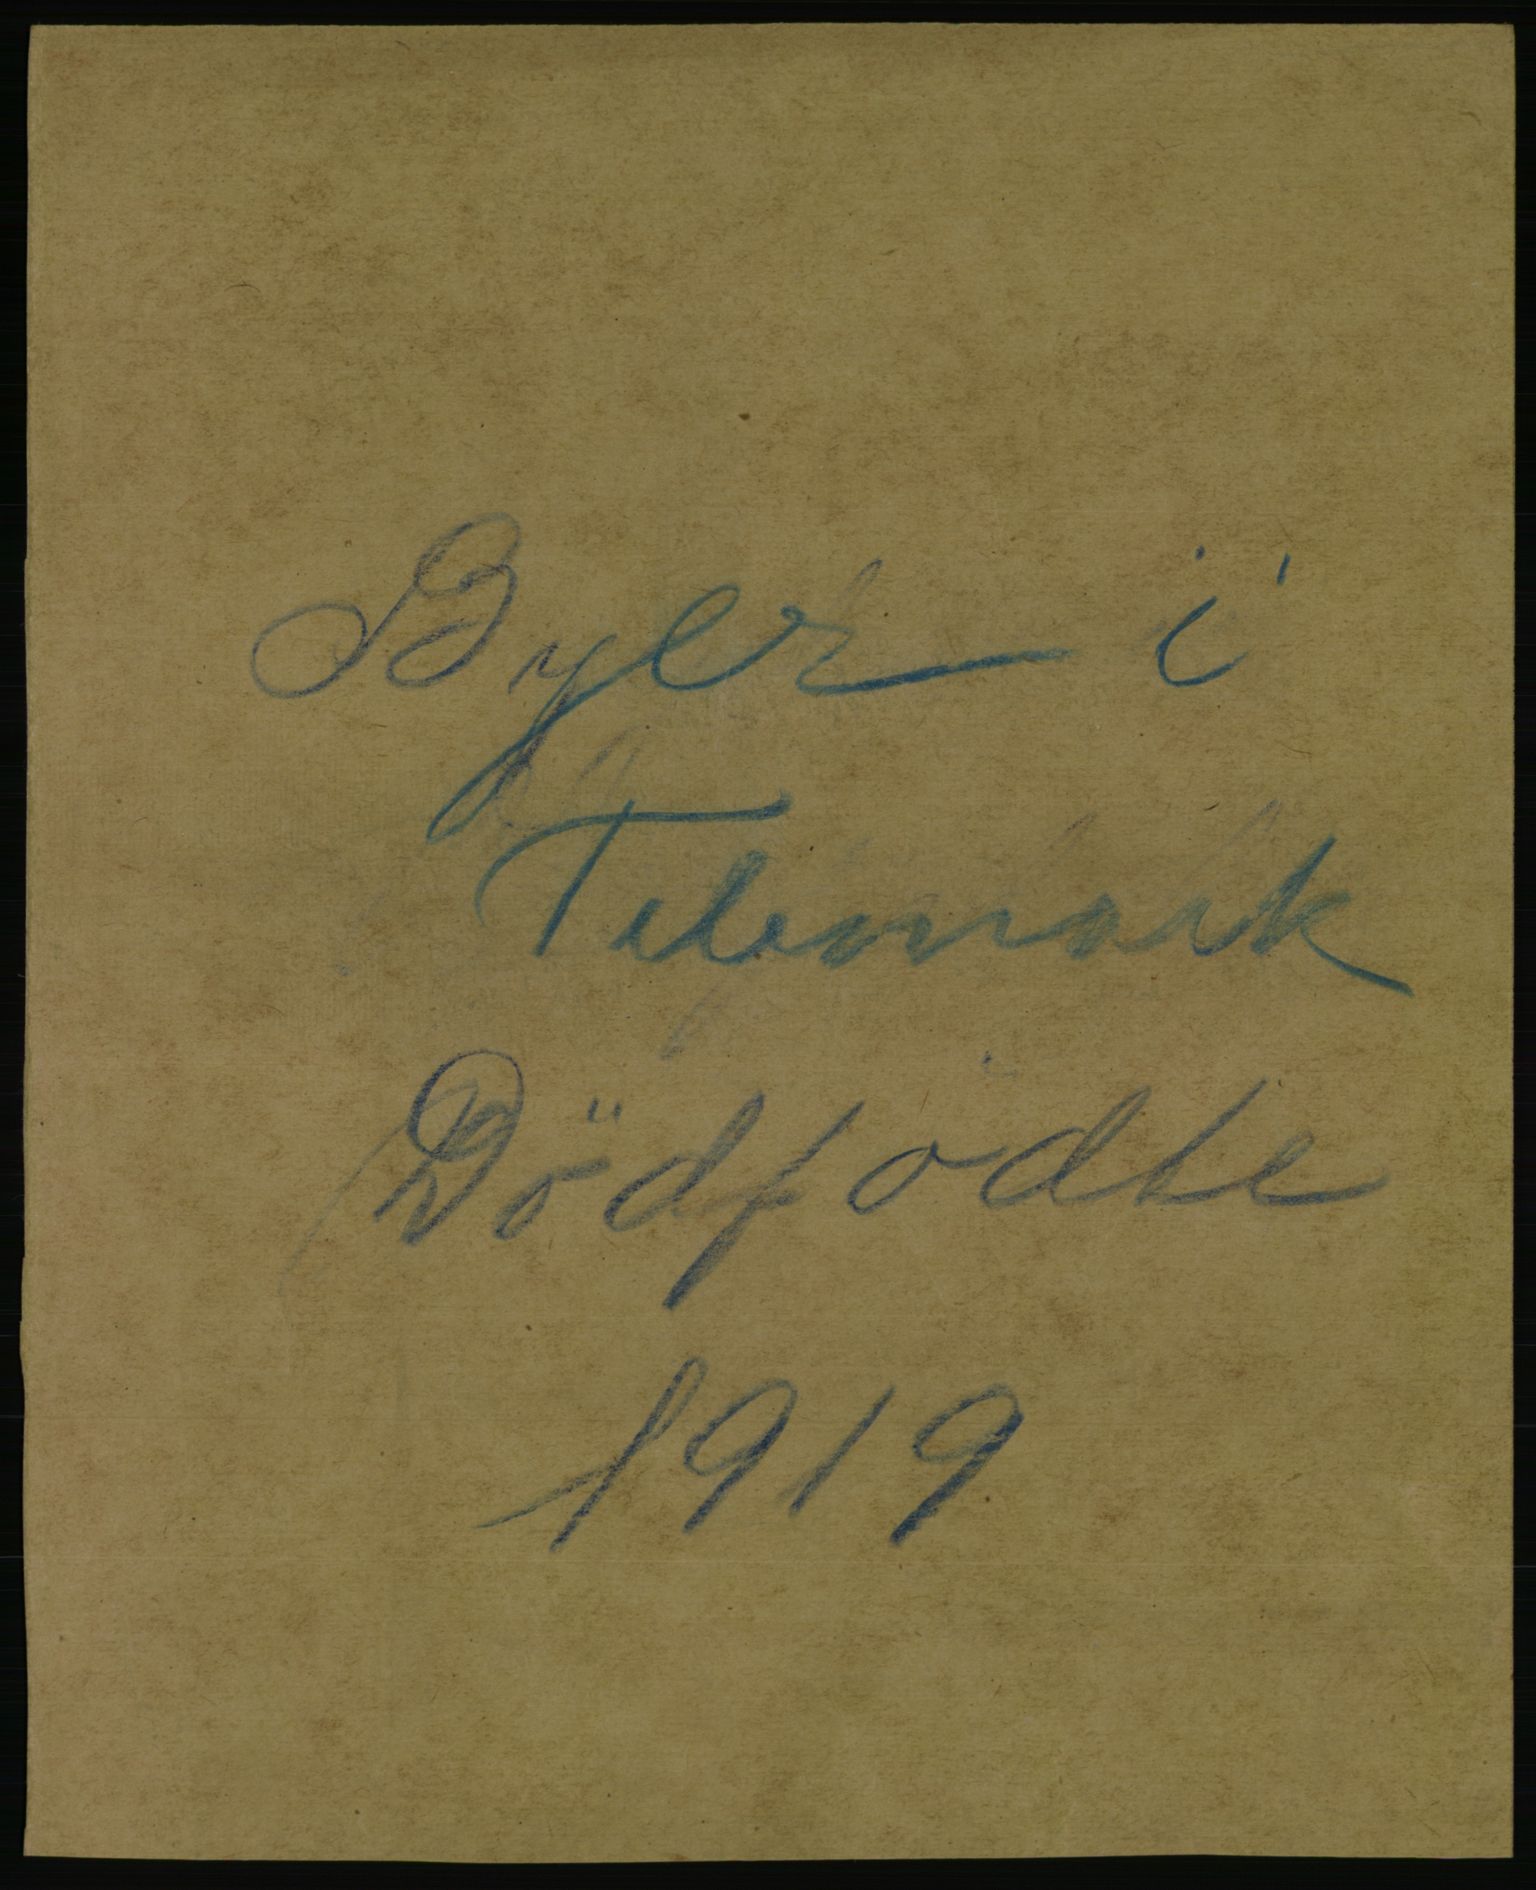 Byer i
Telemark
Dödfödte
1919